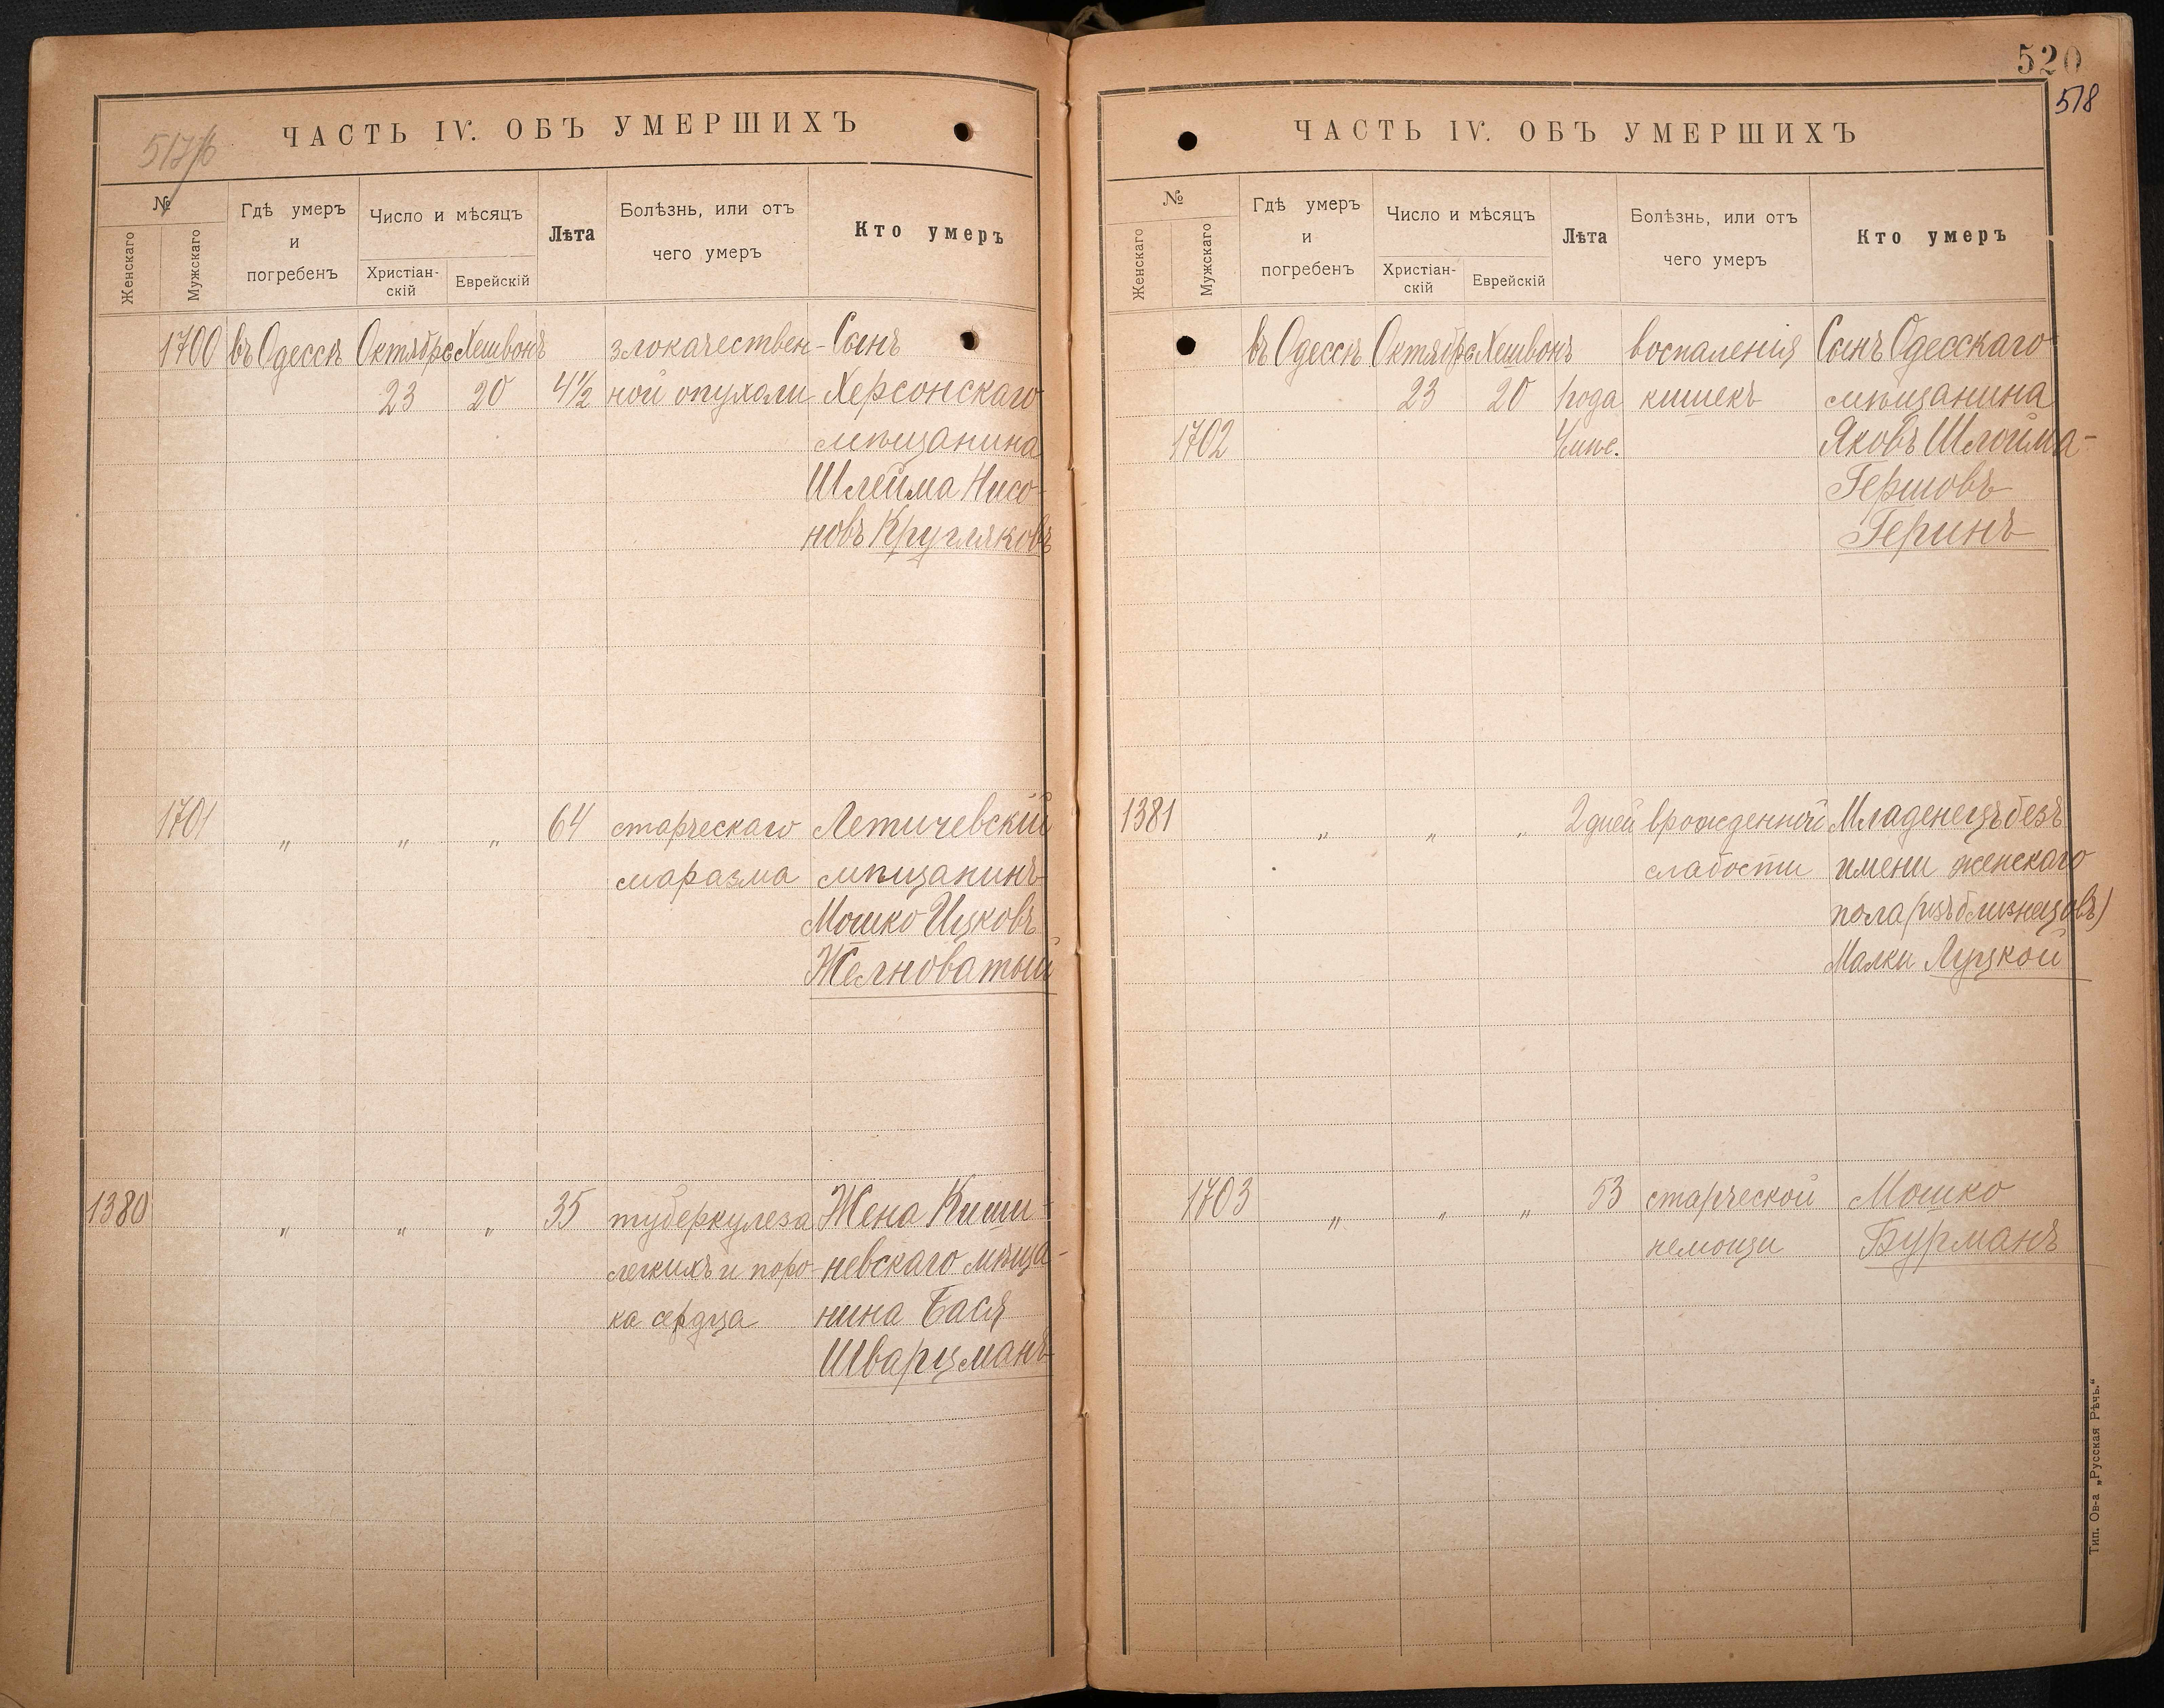 517/б
ЧАСТЬ IV. ОБЪ УМЕРШИХЪ
№
Женскаго
Мужскаго
Гдѣ умеръ
и
погребенъ
Число и мѣсяцъ
Христіан-
скій
Еврейскій
Лѣта
Болѣзнь, или отъ
чего умеръ
Кто умеръ
1700 въ Одессѣ Октябрь Хешвонъ злокачествен- Сынъ
23 20 4½ ной опухоли Херсонскаго
мѣщанина
Шлейма Нисо-
новъ Кругляковъ
1701 " " " 64 старческаго Летичевскій
маразма мѣщанинъ
Мошко Ицковъ
Желноватый
1380 " " " 35 туберкулеза Жена Киши-
легкихъ и поро- невскаго мѣща-
ка сердца нина Бася
Шварцманъ
520
518
ЧАСТЬ IV. ОБЪ УМЕРШИХЪ
№
Женскаго
Мужскаго
Гдѣ умеръ
и
погребенъ
Число и мѣсяцъ
Христіан-
скій
Еврейскій
Лѣта
Болѣзнь, или отъ
чего умеръ
Кто умеръ
въ Одессѣ Октябрь Хешвонъ воспаленія Сынъ Одесскаго
23 20 года кишекъ мѣщанина
1702 Яковъ Шлойма-
Гершовъ
Геринъ
1381 " " " 2 дней врожденной Младенецъ безъ
слабости имени женскаго
пола (изъ близнецовъ)
Малки Луцкой
1703 " " " 53 старческой Мошко
немощи Бурманъ
Тип. Ов-а „Русская Рѣчь.“